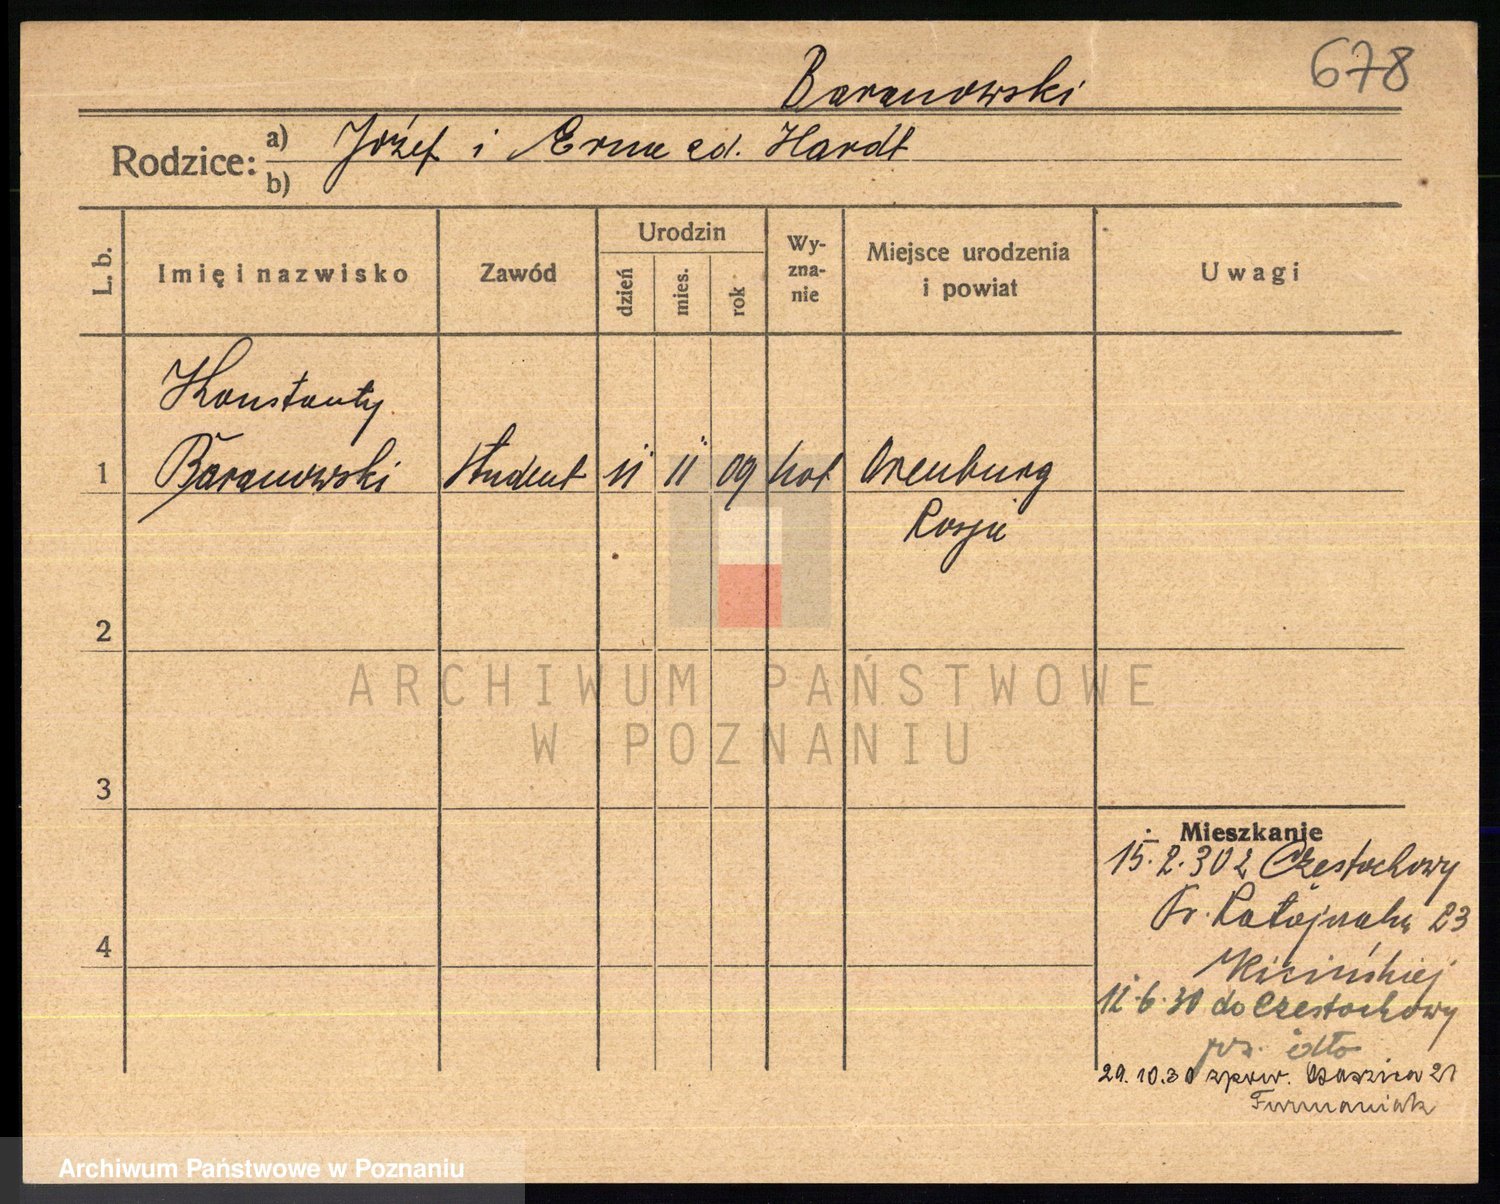 Baranowski
678
Rodzice: a) Józef i Erna zd. Hardt
b)
L. b.
Imię i nazwisko
Zawód
Urodzin
dzień
mies.
rok
Wy-
zna-
nie
Miejsce urodzenia
i powiat
Uwagi
Konstanty
1 Baranowski student 11 11 09 kat Orenburg
Rosja
2
ARCHIWUM PAŃSTWOWE
W POZNANIU
3
Mieszkanie
15.2.30 z Częstochowy
Fr. Ratajczaka 23
12.6.30 do Częstochowy
4
29.10.30 zpow. 21
Furmaniak
Archiwum Państwowe w Poznaniu